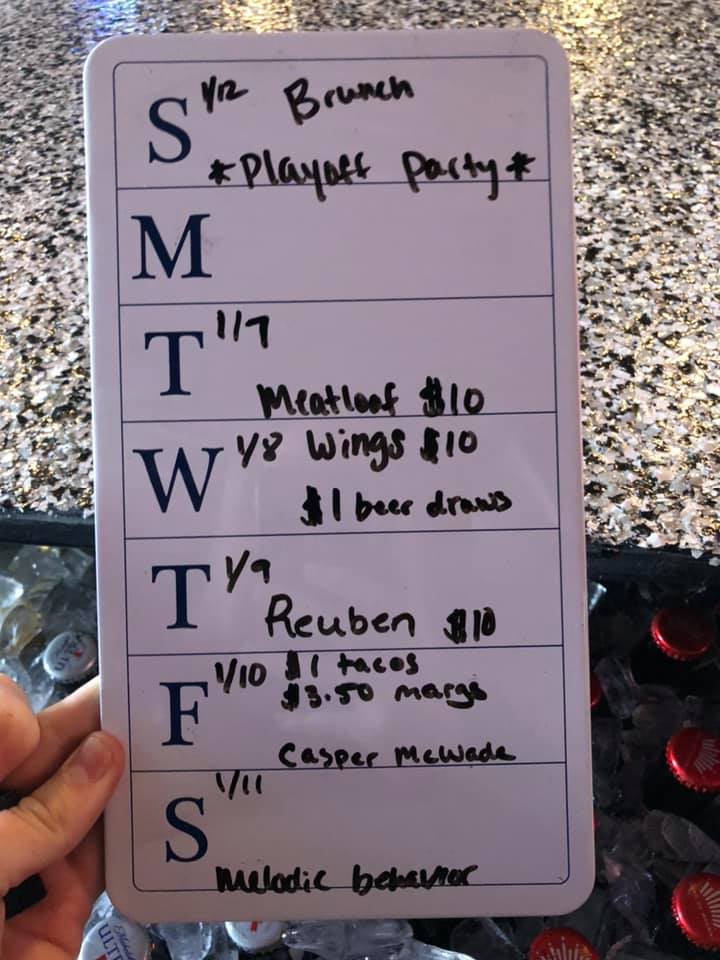 S 1/12 Brunch
*Playoff Party*
M
T 1/7
Meatloaf $10
W 1/8 Wings $10
$1 beer draws
T 1/9
Reuben $10
F 1/10 $1 tacos
$3.50 margs
Casper McWade
S 1/11
Melodic behavior
ULT